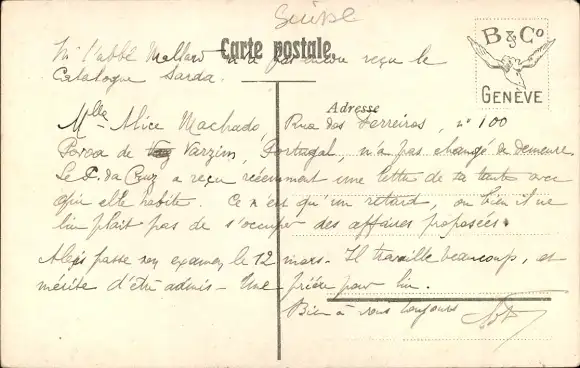 Suisse
B & Co
GENÈVE
Carte postale
M. l'abbé Mallard n'a pas encore reçu le
Catalogue Sarda.
Adresse
Mlle Alice Machado, Rua dos Ferreiros, n° 100
Povoa de Varzim, Portugal, n'a pas changé de demeure.
Le P. da Cruz a reçu récemment une lettre de ta tante avec
qui elle habite. Ce n'est qu'un retard, ou bien il ne
lui plait pas de s'occuper des affaires proposées.
Alexis passe son examen, le 12 mars. Il travaille beaucoup, et
mérite d'être admis. Une prière pour lui.
Bien à vous toujours